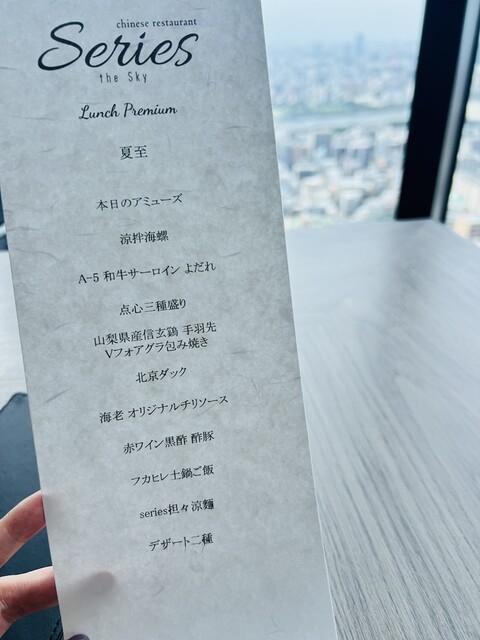 chinese restaurant
Series
the Sky
Lunch Premium
夏至
本日のアミューズ
涼拌海螺
A-5 和牛サーロイン よだれ
点心三種盛り
山梨県産信玄鶏 手羽先
Vフォアグラ包み焼き
北京ダック
海老 オリジナルチリソース
赤ワイン黒酢 酢豚
フカヒレ土鍋ご飯
series担々涼麵
デザート二種